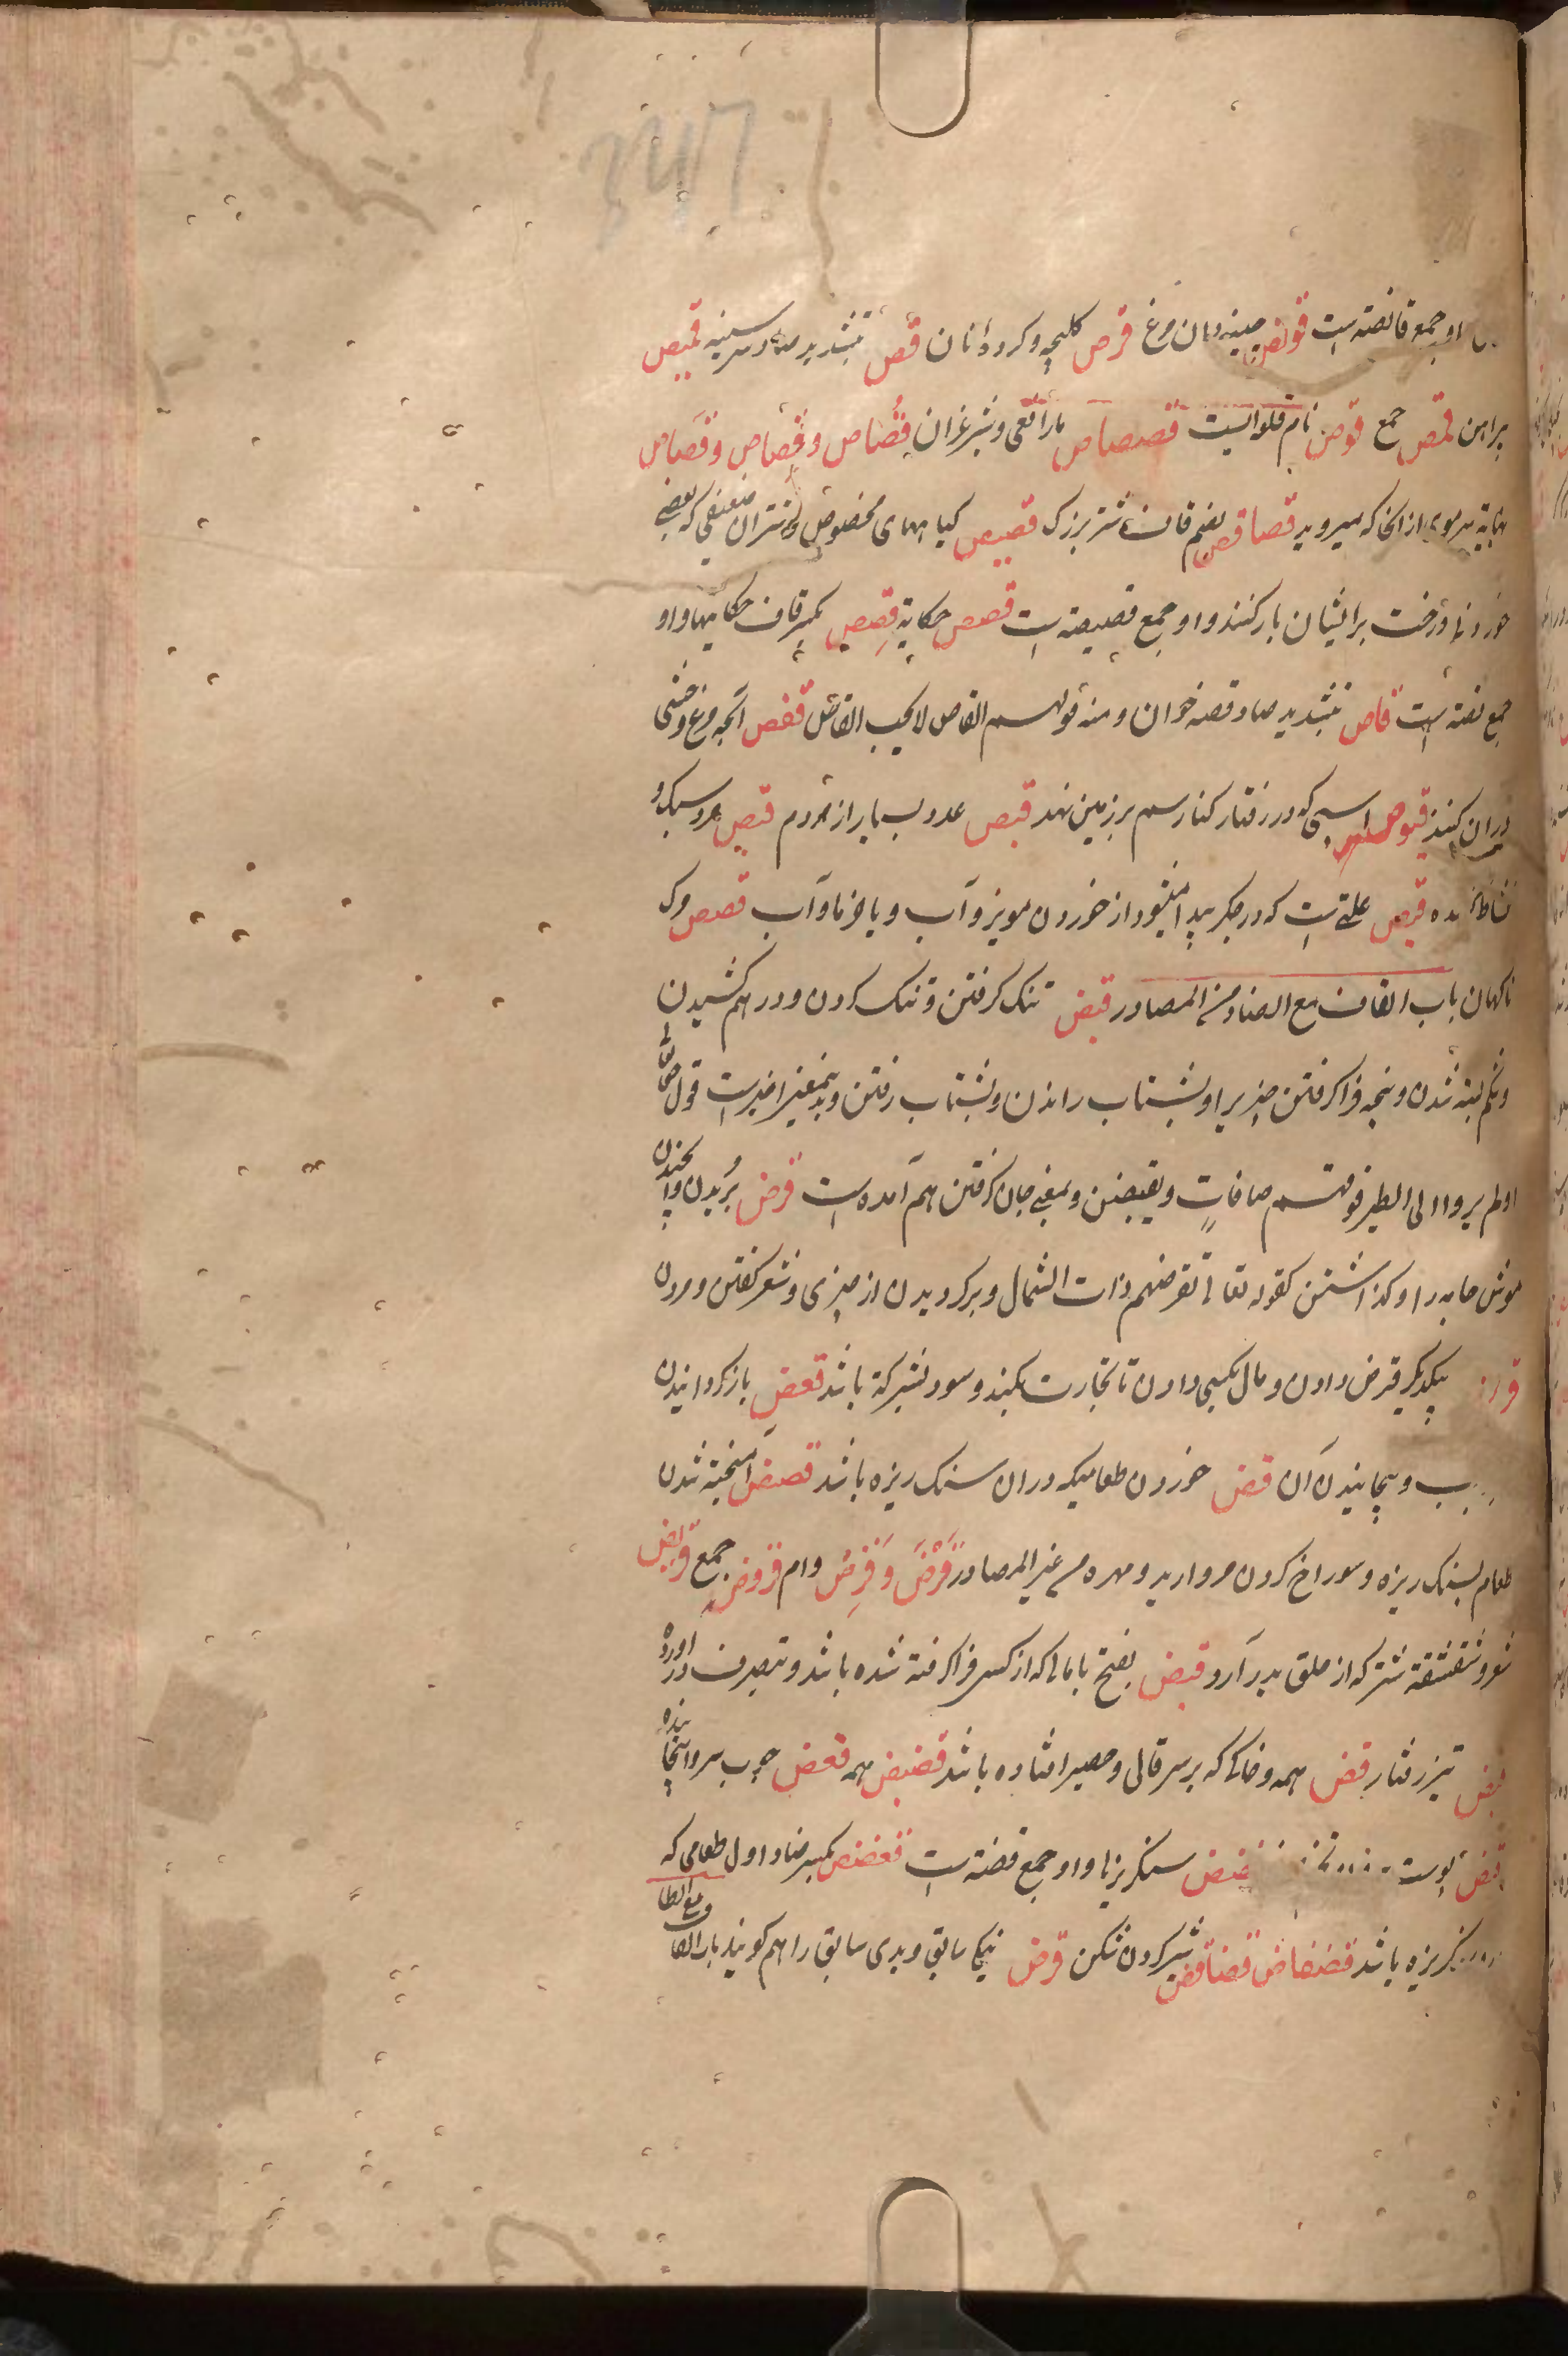 او جمع قانصه است قونص چینه دان مرغ قرص کلیچه و کرده نان قص بتشدید صاد سر سینه قمیص
پراهن قمص جمع قوص نام قلوایست قصصاص مار افعی و شیر غران قُصاص و قِصاص و قَصاص
نهایة سر موی از آنجا که میروید قصاقص بضم قاف شتر بزرک قصیص کیاههای مخصوص و شتران ضعیفی که بعضی
خوردنی و رخت بر ایشان بار کنند و او جمع قصیصه است قصص حکایة قِصص بکسر قاف حکایتها و او
جمع قصه است قاص بتشدید صاد قصه خوان و منه قولهم القاص لا یحب القاص قفص آنچه مرغ وحشی
دران کنند قبوص اسبی که در رفتار کنار سم بر زمین نهد قبص عدد بسیار از مردم قبص مرد سبک و
نشاط کننده قبص علتی است که در جکر پیدا میشود از خوردن مویز و آب و یا خرما و آب قعص مرک
ناکهان باب القاف مع الضاد من المصادر قبض تنک کرفتن و تنک کردن و درهم کشیدن
و شکم بسته شدن و پنجه فرا کرفتن چیزیرا و بشتاب راندن و بشتاب رفتن و بدینمعنی اخیرست قوله تعالی
اولم یروا الی الطیر فوقهم صافاتٍ و یقبضن و بمعنی جان کرفتن هم آمده است قرض بُریدن و
موش جامه را و کذاشتن کقوله تعالی تقرضهم ذات الشمال و برکردیدن از چیزی و شعر کفتن و مردن
بیکدیکر قرض دادن و مال بکسی دادن تا تجارت بکند و سود بشرکة باشد قعض باز کردانیدن
و پیچانیدن آن قض خوردن طعامیکه دران سنک ریزه باشد قضض آمیخته شدن
طعام بسنک ریزه و سوراخ کردن مروارید و مهره من غیر المصادر قَرْض و قِرض وام قروض جمع قریض
شعر و شقشقه شتر که از حلق بدر آرد قبض بفتح با مالی که از کسی فرا کرفته شده باشد و بتصرف در آورده
قبض تیز رفتار قض همه و خاکی که بر سر قالی و حصیر افتاده باشد قضیض همه قعض چوب سر وا پیچانیده
قیض پوست قضض سنکریزها و او جمع قضه است قضض بکسر ضاد اول طعامی که
سنکریزه باشد قضقاض قضاقض شیر کردن شکن قرض نیکی سابق و بدی سابق را هم کویند باب القاف مع الطا